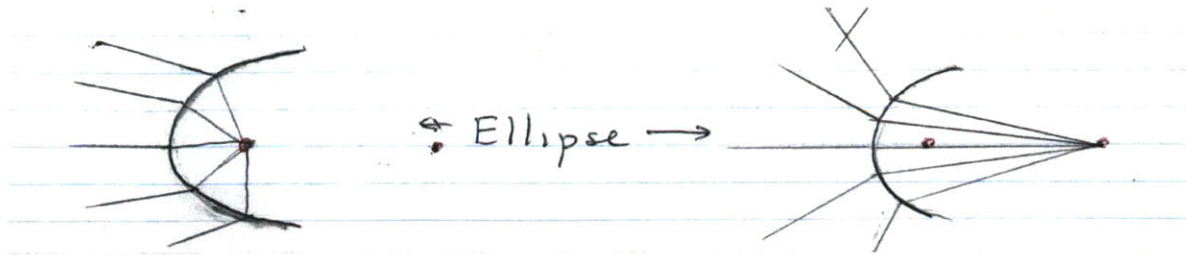 ← Ellipse →